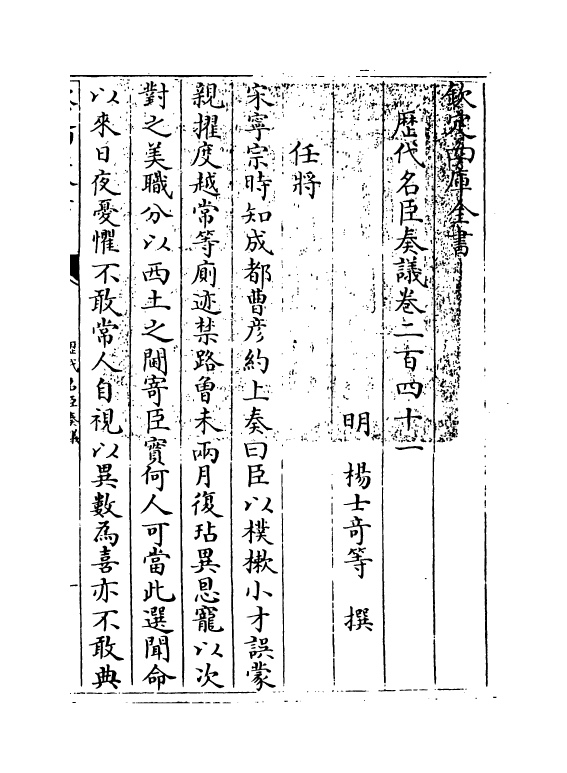 欽定四庫全書
歷代名臣奏議卷二百四十一
明 楊士奇等 撰
任將
宋寧宗時知成都曹彥約上奏曰臣以樸樕小才誤蒙
親擢度越常等廁迹禁路曾未兩月復玷異恩寵以次
對之美職分以西土之閫寄臣實何人可當此選聞命
以來日夜憂懼不敢常人自視以異數為喜亦不敢典
歴代名臣奏議
一